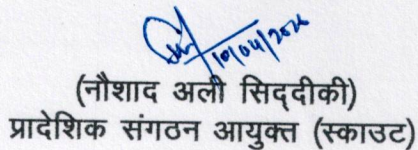 10/04/2026
(नौशाद अली सिद्दीकी)
प्रादेशिक संगठन आयुक्त (स्काउट)